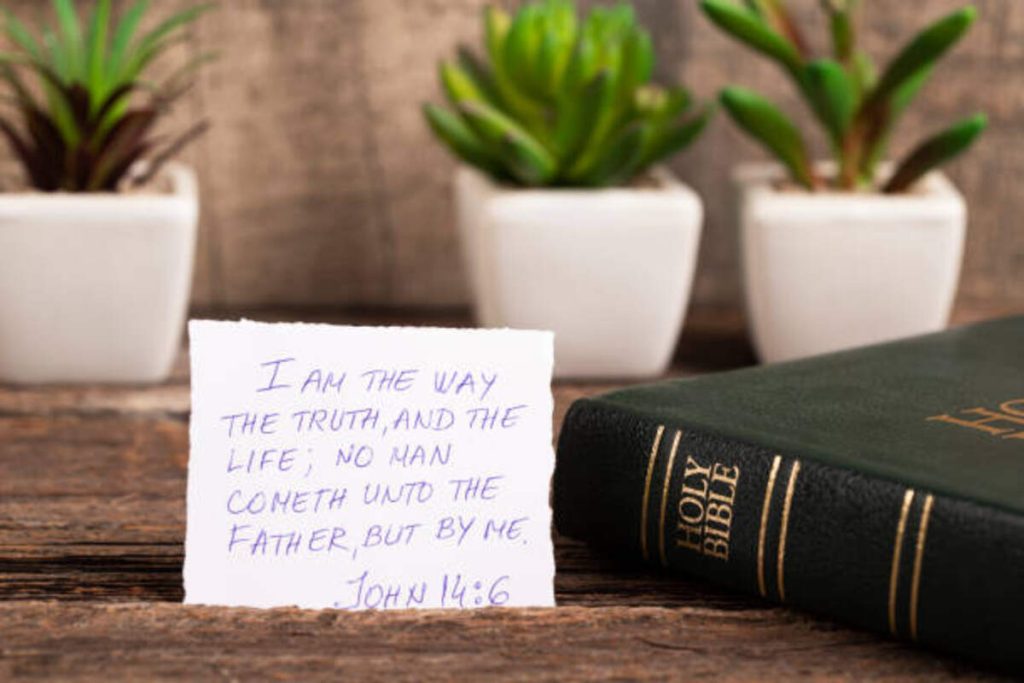 I AM THE WAY
THE TRUTH, AND THE
LIFE; NO MAN
COMETH UNTO THE
FATHER, BUT BY ME.
JOHN 14:6
HOLY
BIBLE